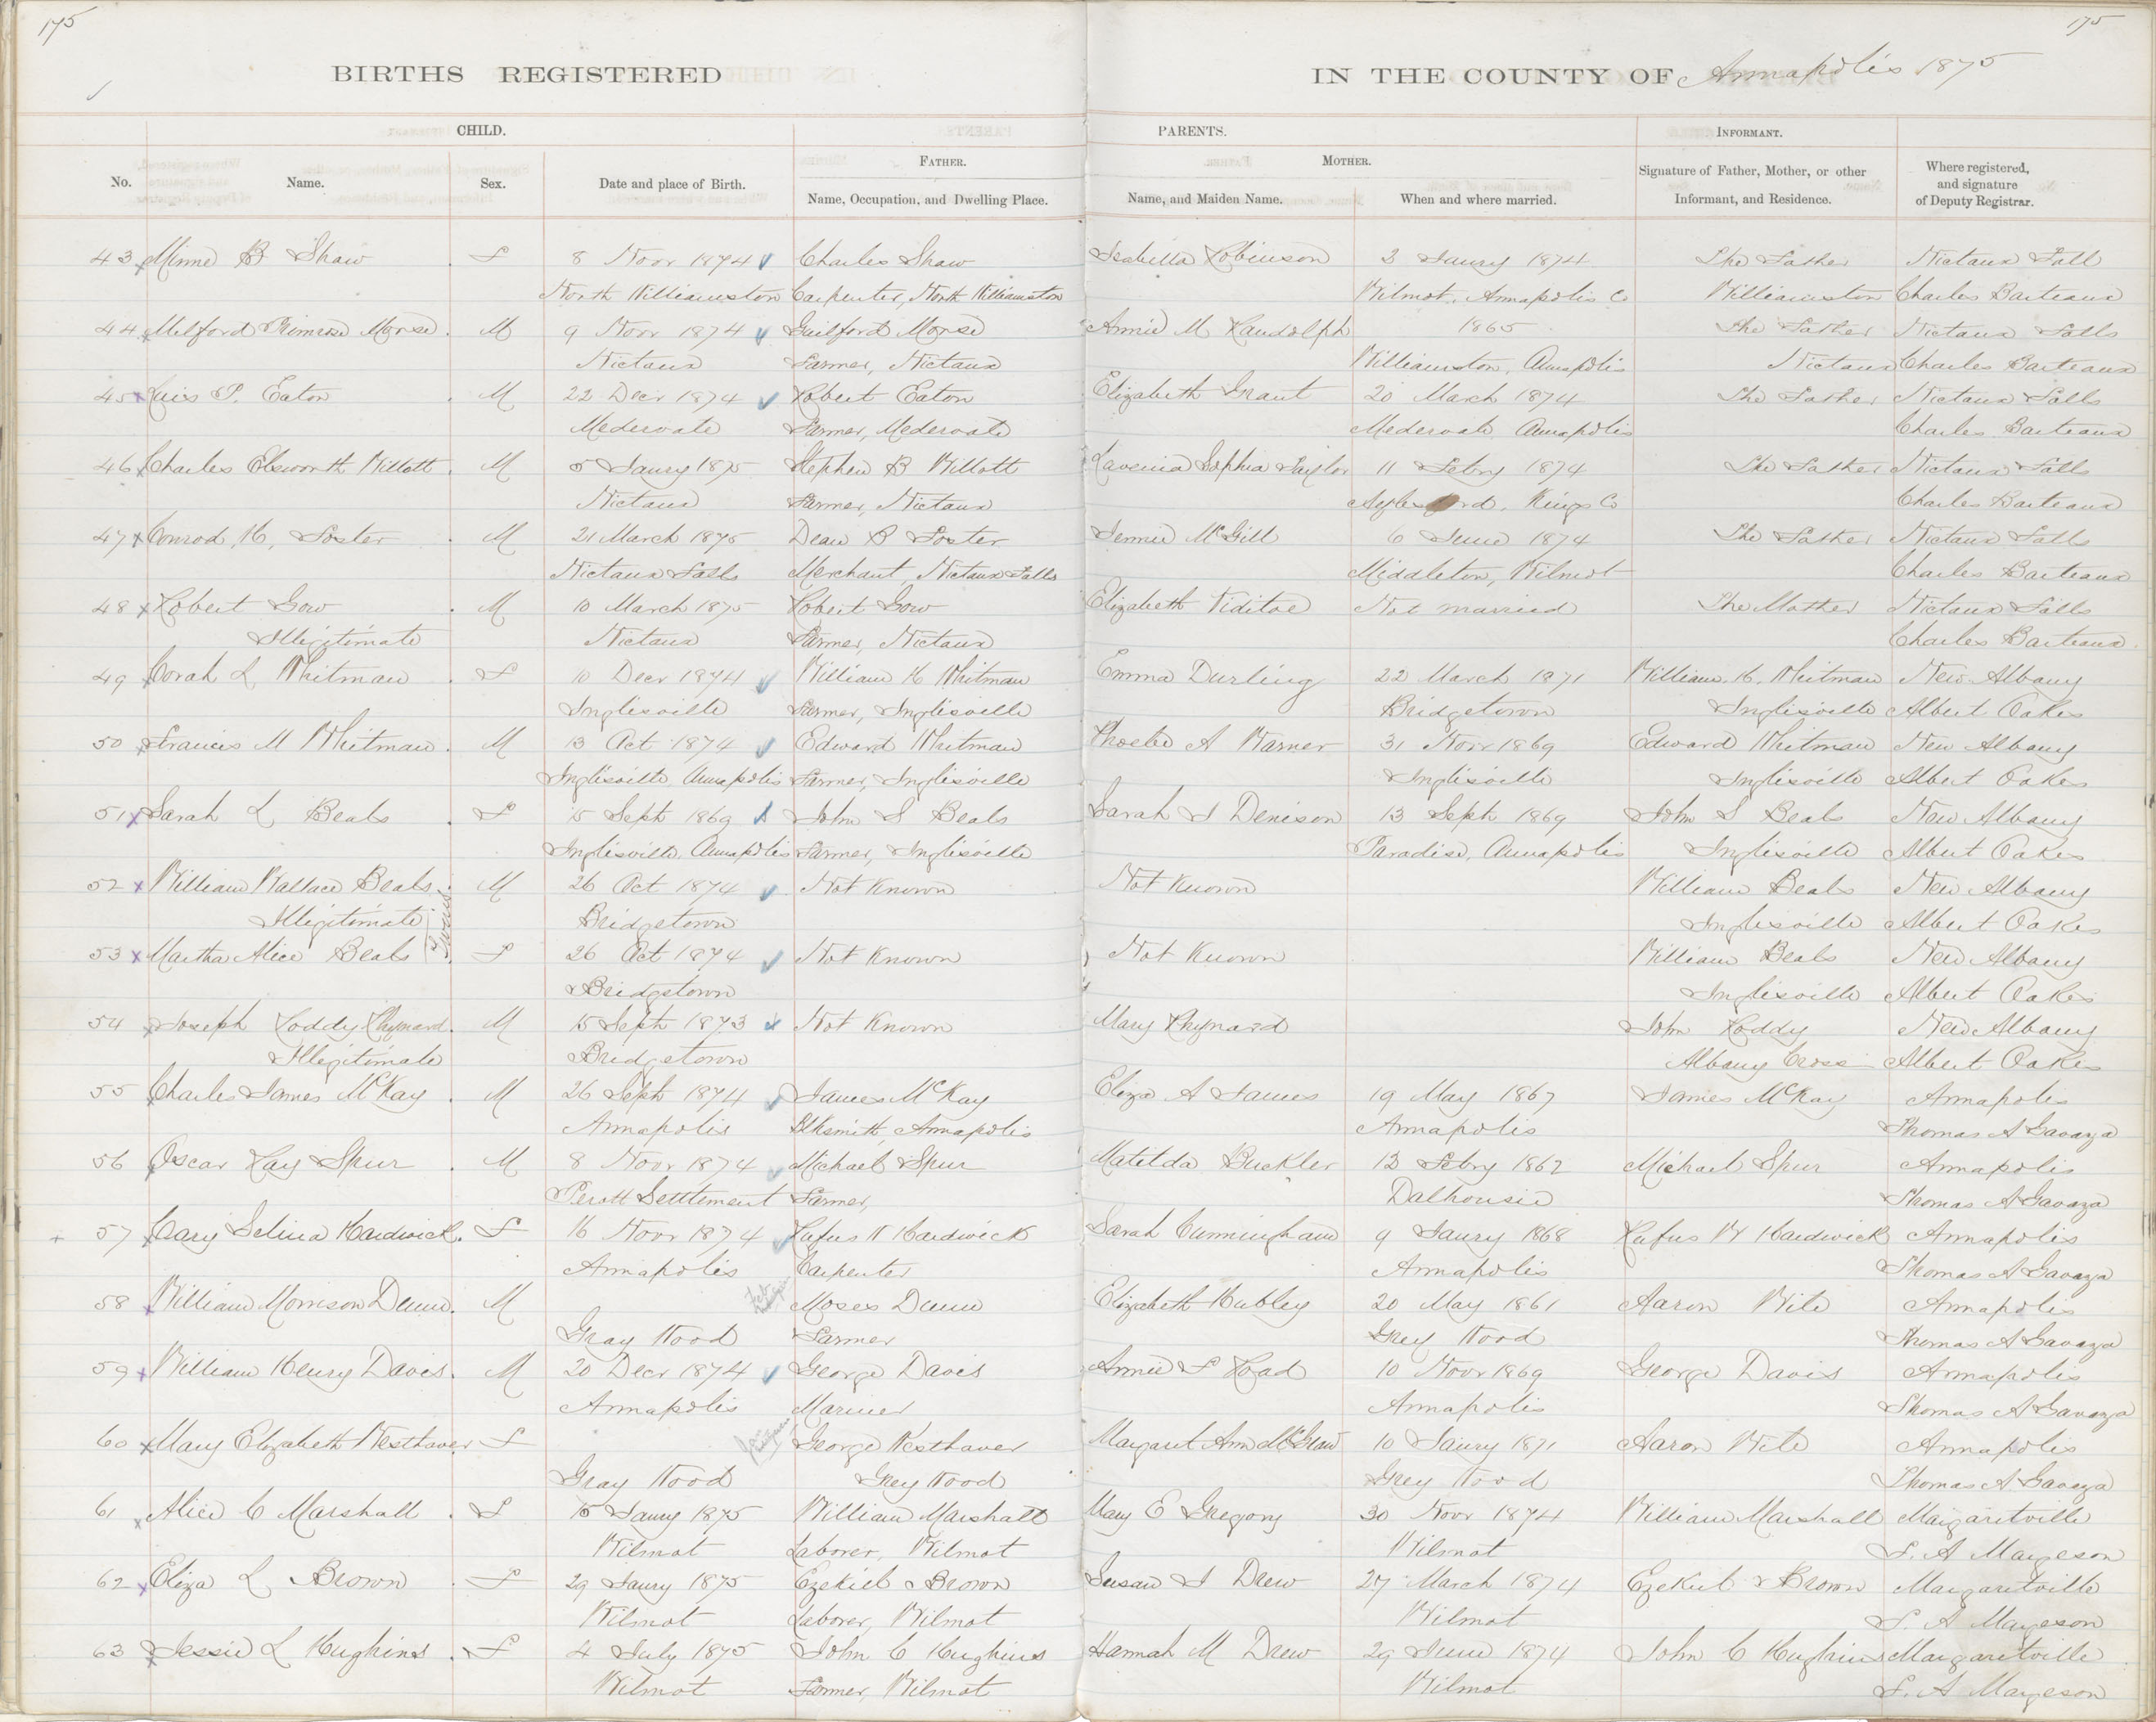 175
175
BIRTHS REGISTERED IN THE COUNTY OF Annapolis 1875
CHILD. PARENTS. INFORMANT.
FATHER. MOTHER.
No. Name. Sex. Date and place of Birth. Name, Occupation, and Dwelling Place. Name, and Maiden Name. When and where married. Signature of Father, Mother, or other Informant, and Residence. Where registered, and signature of Deputy Registrar.
43 Minnie B Shaw F 8 Novr 1874 Charles Shaw Isabella Robinson 3 Jaury 1874 The Father Nictaux Fall
North Williamston Carpenter, North Williamston Wilmot, Annapolis Co Williamston Charles Barteaux
44 Milford Primrose Morse M 9 Novr 1874 Guilford Morse Annie M Randolph 1865 The Father Nictaux Falls
Nictaux Farmer, Nictaux Williamston, Annapolis Nictaux Charles Barteaux
45 P. Eaton M 22 Decr 1874 Robert Eaton Elizabeth Grant 20 March 1874 The Father Nictaux Falls
Medervate Farmer, Medervate Medervate Annapolis Charles Barteaux
46 Charles Elsworth Willott M 5 Jaury 1875 Stephen B Willott Lavenia Sophia Taylor 11 Febry 1874 The Father Nictaux Falls
Nictaux Farmer, Nictaux Aylesford, Kings Co Charles Barteaux
47 Conrod H, Foster M 21 March 1875 Dean B Foster Jennie McGill 6 June 1874 The Father Nictaux Falls
Nictaux Falls Merchant, Nictaux Falls Middleton, Wilmot Charles Barteaux
48 Robert Gow M 10 March 1875 Robert Gow Elizabeth Viditoe Not married The Mother Nictaux Falls
Illegitimate Nictaux Farmer, Nictaux Charles Barteaux
49 Corah L Whitman F 10 Decr 1874 William H Whitman Emma Durling 22 March 1871 William. H. Whitman New Albany
Inglisville Farmer, Inglisville Bridgetown Inglisville Albert Oakes
50 Francis M Whitman M 13 Oct 1874 Edward Whitman Phoebe A Warner 31 Novr 1869 Edward Whitman New Albany
Inglisville Annapolis Farmer, Inglisville Inglisville Inglisville Albert Oakes
51 Sarah L Beals F 15 Sept 1869 John S Beals Sarah J Denison 13 Sept 1869 John S Beals New Albany
Inglisville, Annapolis Farmer, Inglisville Paradise, Annapolis Inglisville Albert Oakes
52 William Wallace Beals M 26 Oct 1874 Not Known Not Known William Beals New Albany
Illegitimate Twins Bridgetown Inglisville Albert Oakes
53 Martha Alice Beals F 26 Oct 1874 Not Known Not Known William Beals New Albany
Bridgetown Inglisville Albert Oakes
54 Joseph Roddy Rhynard M 15 Sept 1873 Not Known Mary Rhynard John Roddy New Albany
Illegitimate Bridgetown Albany Cross Albert Oakes
55 Charles James McKay M 26 Sept 1874 James McKay Eliza A James 19 May 1867 James McKay Annapolis
Annapolis Blksmith, Annapolis Annapolis Thomas A Gavaza
56 Oscar Ray Spur M 8 Novr 1874 Michael Spur Matilda Buckler 13 Febry 1862 Michael Spur Annapolis
Perott Settlement Farmer, Dalhousie Thomas A Gavaza
57 Selina Hardwick F 16 Novr 1874 Rufus W Hardwick Sarah Cunningham 9 Jaury 1868 Rufus W Hardwick Annapolis
Annapolis Carpenter Annapolis Thomas A Gavaza
58 William Morrison Dunn M Moses Dunn Elizabeth Hubley 20 May 1861 Aaron Wile Annapolis
Gray Wood Farmer Grey Wood Thomas A Gavaza
59 William Henry Davis M 20 Decr 1874 George Davis Annie F Hoad 10 Novr 1869 George Davis Annapolis
Annapolis Mariner Annapolis Thomas A Gavaza
60 Mary Elizabeth Westhaver F George Westhaver Margaret Ann McGraw 10 Jaury 1871 Aaron Wile Annapolis
Gray Wood Grey Wood Grey Wood Thomas A Gavaza
61 Alice C Marshall F 15 Jaury 1875 William Marshall Mary E Gregory 30 Novr 1874 William Marshall Margaritville
Wilmot Laborer, Wilmot Wilmot F. A Margeson
62 Eliza L Brown F 29 Jaury 1875 Ezekiel Brown Susan J Drew 27 March 1874 Ezekiel Brown Margaritville
Wilmot Laborer, Wilmot Wilmot F. A Margeson
63 Jessie L Hughins F 4 July 1875 John C Hughins Hannah M Drew 29 June 1874 John C Hughins Margaritville
Wilmot Farmer, Wilmot Wilmot F. A Margeson